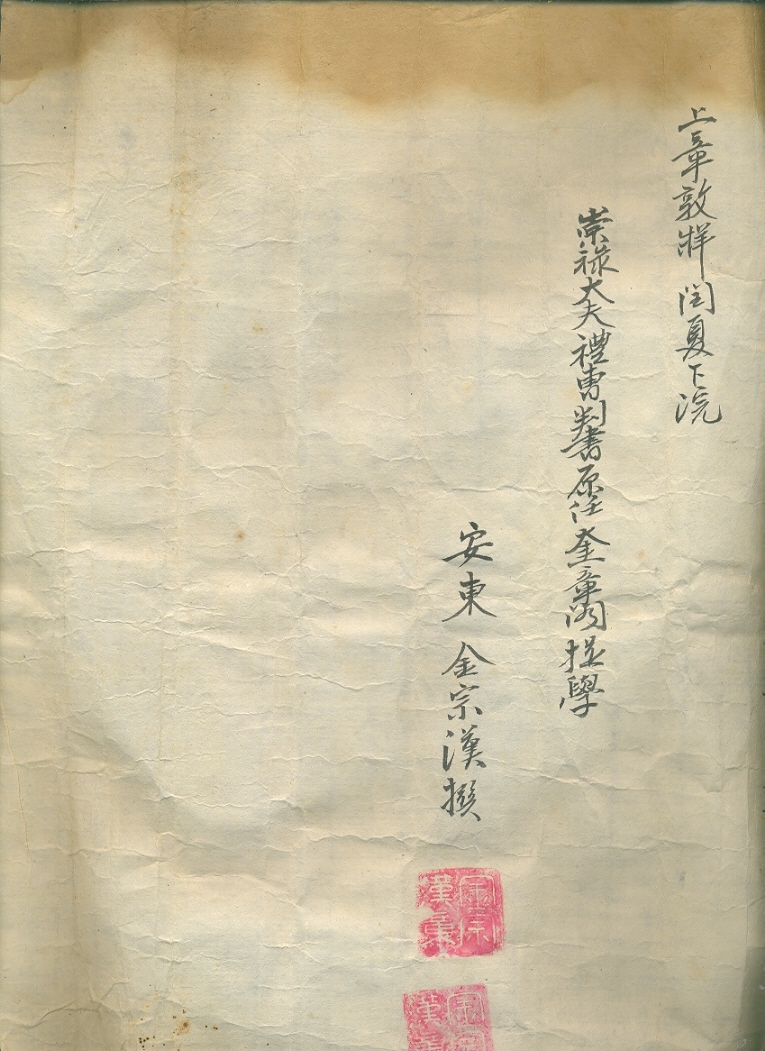 上章敦牂閏夏下浣
崇祿大夫禮曹判書原任奎章閣提學
安東 金宗漢撰
金宗
漢
金宗
漢